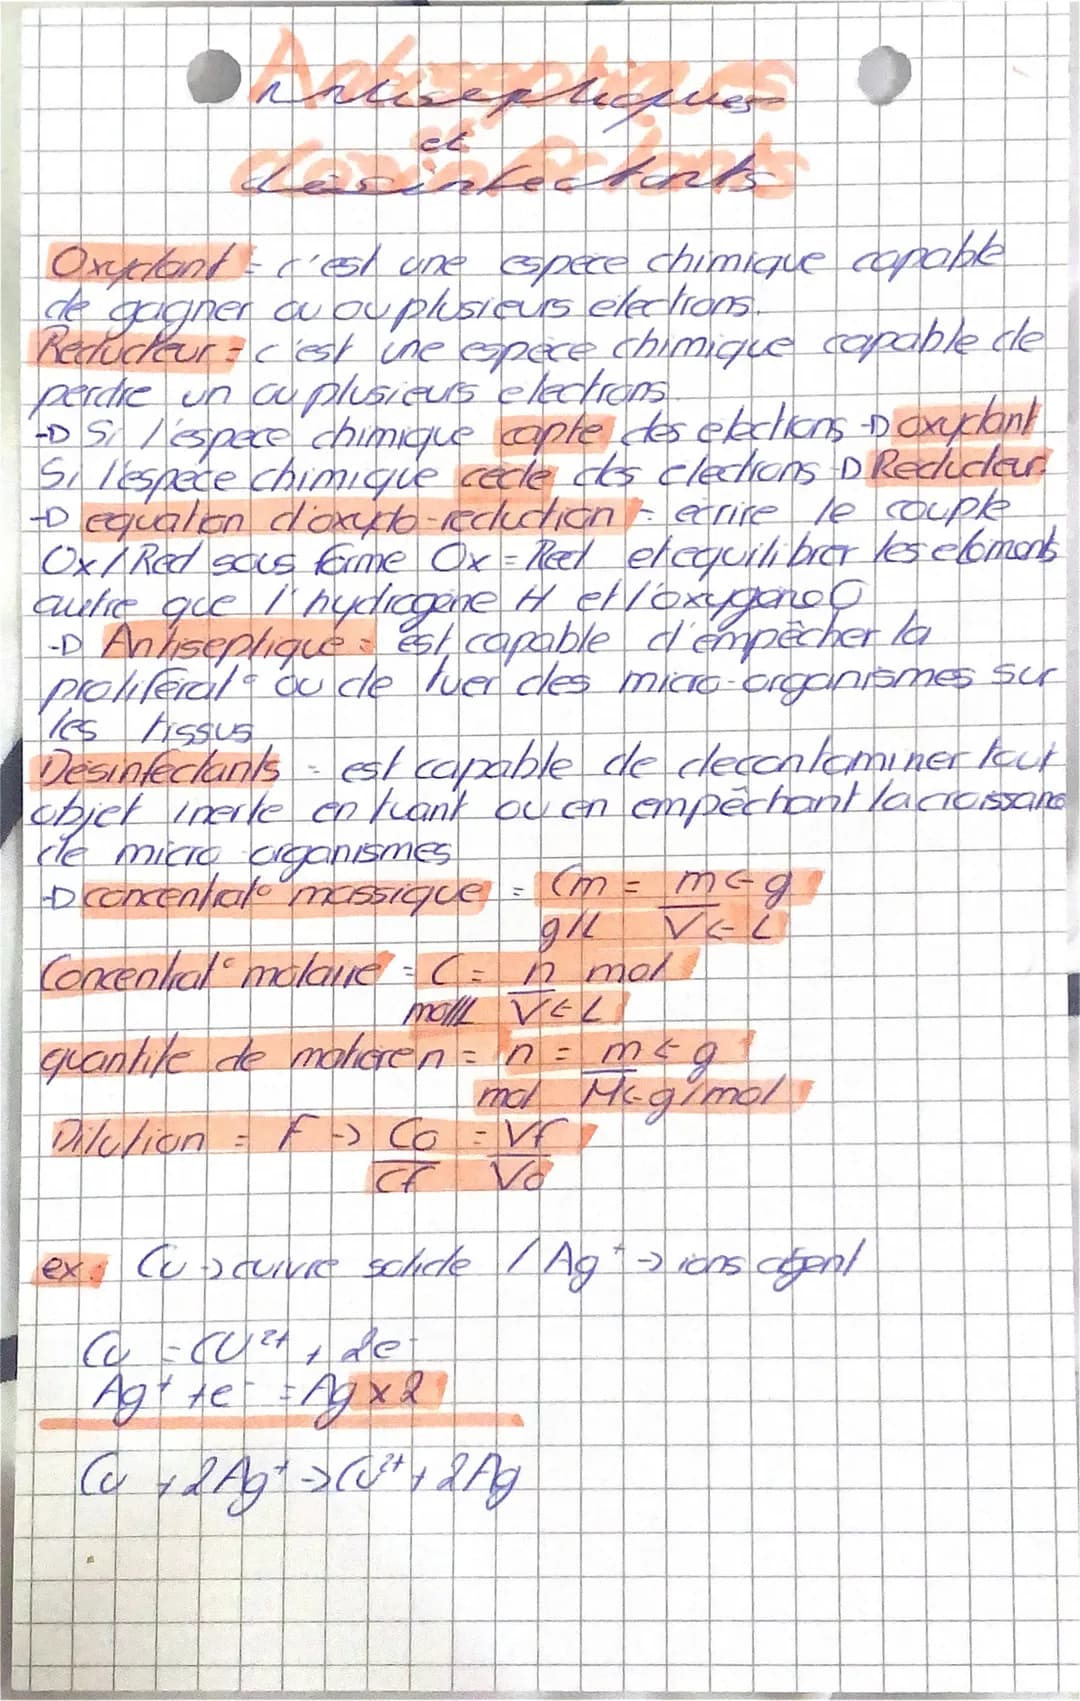 Antiseptiques
et
désinfectants
Oxydant = c'est une espèce chimique capable
de gagner ou ou plusieurs électrons.
Réducteur = c'est une espèce chimique capable de
perdre un ou plusieurs électrons.
→ Si l'espèce chimique capte des électrons → oxydant
Si l'espèce chimique cède des électrons → Réducteur
→ équation d'oxydo-réduction = écrire le couple
Ox/Red sous forme Ox = Red et équilibrer les eléments
autre que l'hydrogène H et l'oxygène O
→ Antiseptique = est capable d'empêcher la
proliférat° ou de tuer des micro-organismes sur
les tissus
Désinfectants = est capable de décontaminer tout
objet inerte en tuant ou en empêchant la croissance
de micro organismes
→ concentrat° massique = Cm = m ← g
g/L V ← L
Concentrat° molaire = C = n mol
mol/L V ← L
quantité de matière n = n = m ← g
mol M ← g/mol
Dilution = F → Co = Vf
Cf Vo
ex: Cu → cuivre solide / Ag⁺ → ions argent
Cu = Cu²⁺ + 2e⁻
Ag⁺ + e⁻ = Ag x 2
Cu + 2Ag⁺ → Cu²⁺ + 2Ag